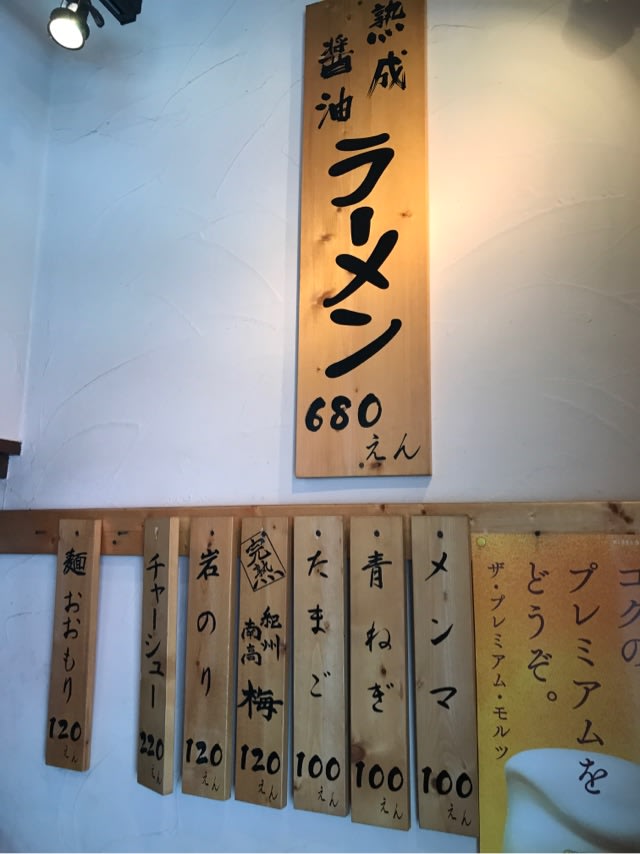 熟成
醤油
ラーメン
680
えん
メンマ
100
えん
青ねぎ
100
えん
たまご
100
えん
完熟
紀州
南高
梅
120
えん
岩のり
120
えん
チャーシュー
220
えん
麺おおもり
120
えん
コクの
プレミアムを
どうぞ。
ザ・プレミアム・モルツ